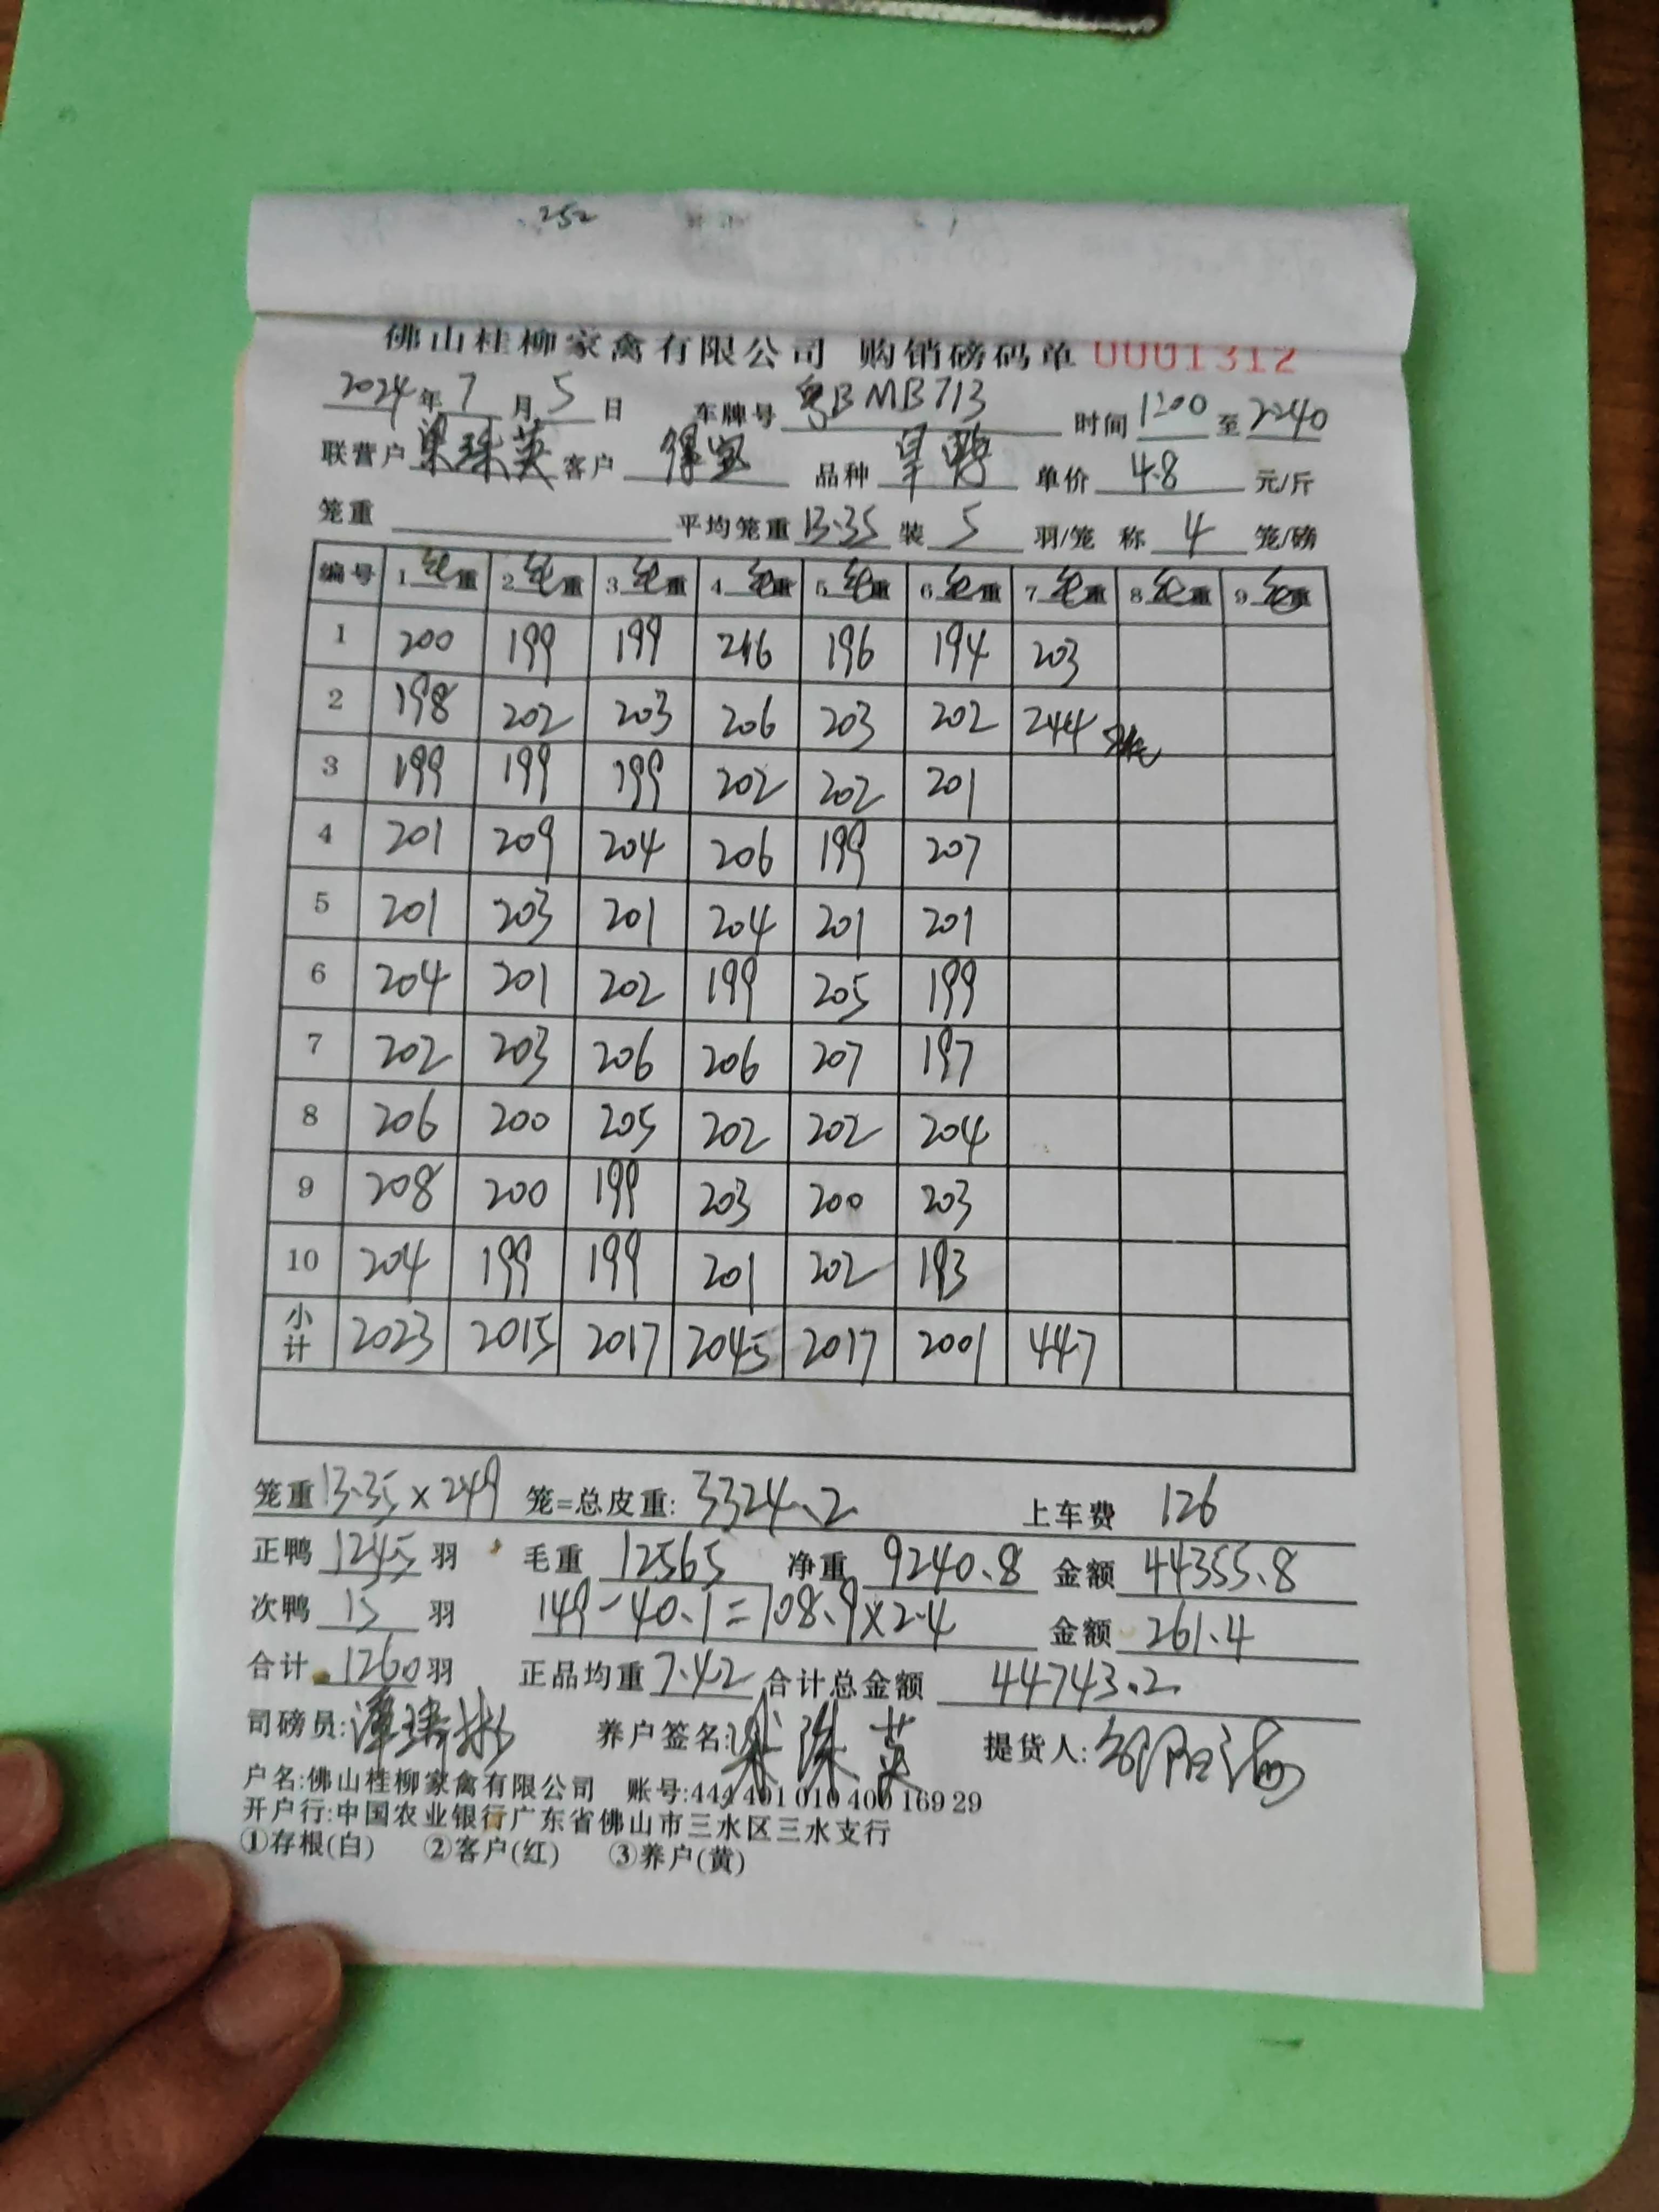 252
佛山桂柳家禽有限公司 购销磅码单 0001312
2024年 7 月 5 日 车牌号 粤BMB713 时间 1200 至 2240
联营户 梁珠英 客户 品种 旱鸭 单价 4.8 元/斤
笼重 平均笼重 13.35 装 5 羽/笼 称 4 笼/磅
编号 1 毛重 2 毛重 3 毛重 4 毛重 5 毛重 6 毛重 7 毛重 8 毛重 9 毛重
1 200 199 199 216 196 194 203
2 198 202 203 206 203 202 244
3 199 199 199 202 202 201
4 201 209 204 206 199 207
5 201 203 201 204 201 201
6 204 201 202 199 205 199
7 202 203 206 206 207 197
8 206 200 205 202 202 204
9 208 200 199 203 200 203
10 204 199 199 201 202 193
小计 2023 2015 2017 2045 2017 2001 447
笼重 13.35×249 笼=总皮重: 3324.2 上车费 126
正鸭 1245 羽 毛重 12565 净重 9240.8 金额 44355.8
次鸭 15 羽 149-40.1=108.9×2.4 金额 261.4
合计 1260 羽 正品均重 7.42 合计总金额 44743.2
司磅员: 养户签名: 梁珠英 提货人:
户名:佛山桂柳家禽有限公司 账号:444 401 010 400 169 29
开户行:中国农业银行广东省佛山市三水区三水支行
①存根(白) ②客户(红) ③养户(黄)